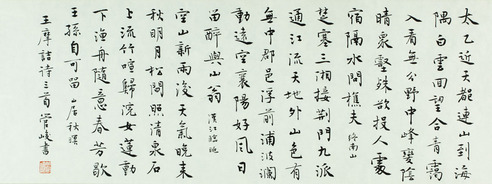 太乙近天都連山到海
隅白雲回望合青靄
入看無分野中峰變陰
晴衆壑殊欲投人處
宿隔水問樵夫 終南山
楚塞三湘接荊門九派
通江流天地外山色有
無中郡邑浮前浦波瀾
動遠空襄陽好風日
留醉與山翁 漢江臨眺
空山新雨後天氣晚來
秋明月松間照清泉石
上流竹喧歸浣女蓮動
下漁舟隨意春芳歇
王孫自可留 山居秋暝
王摩詰詩三首 管峻書